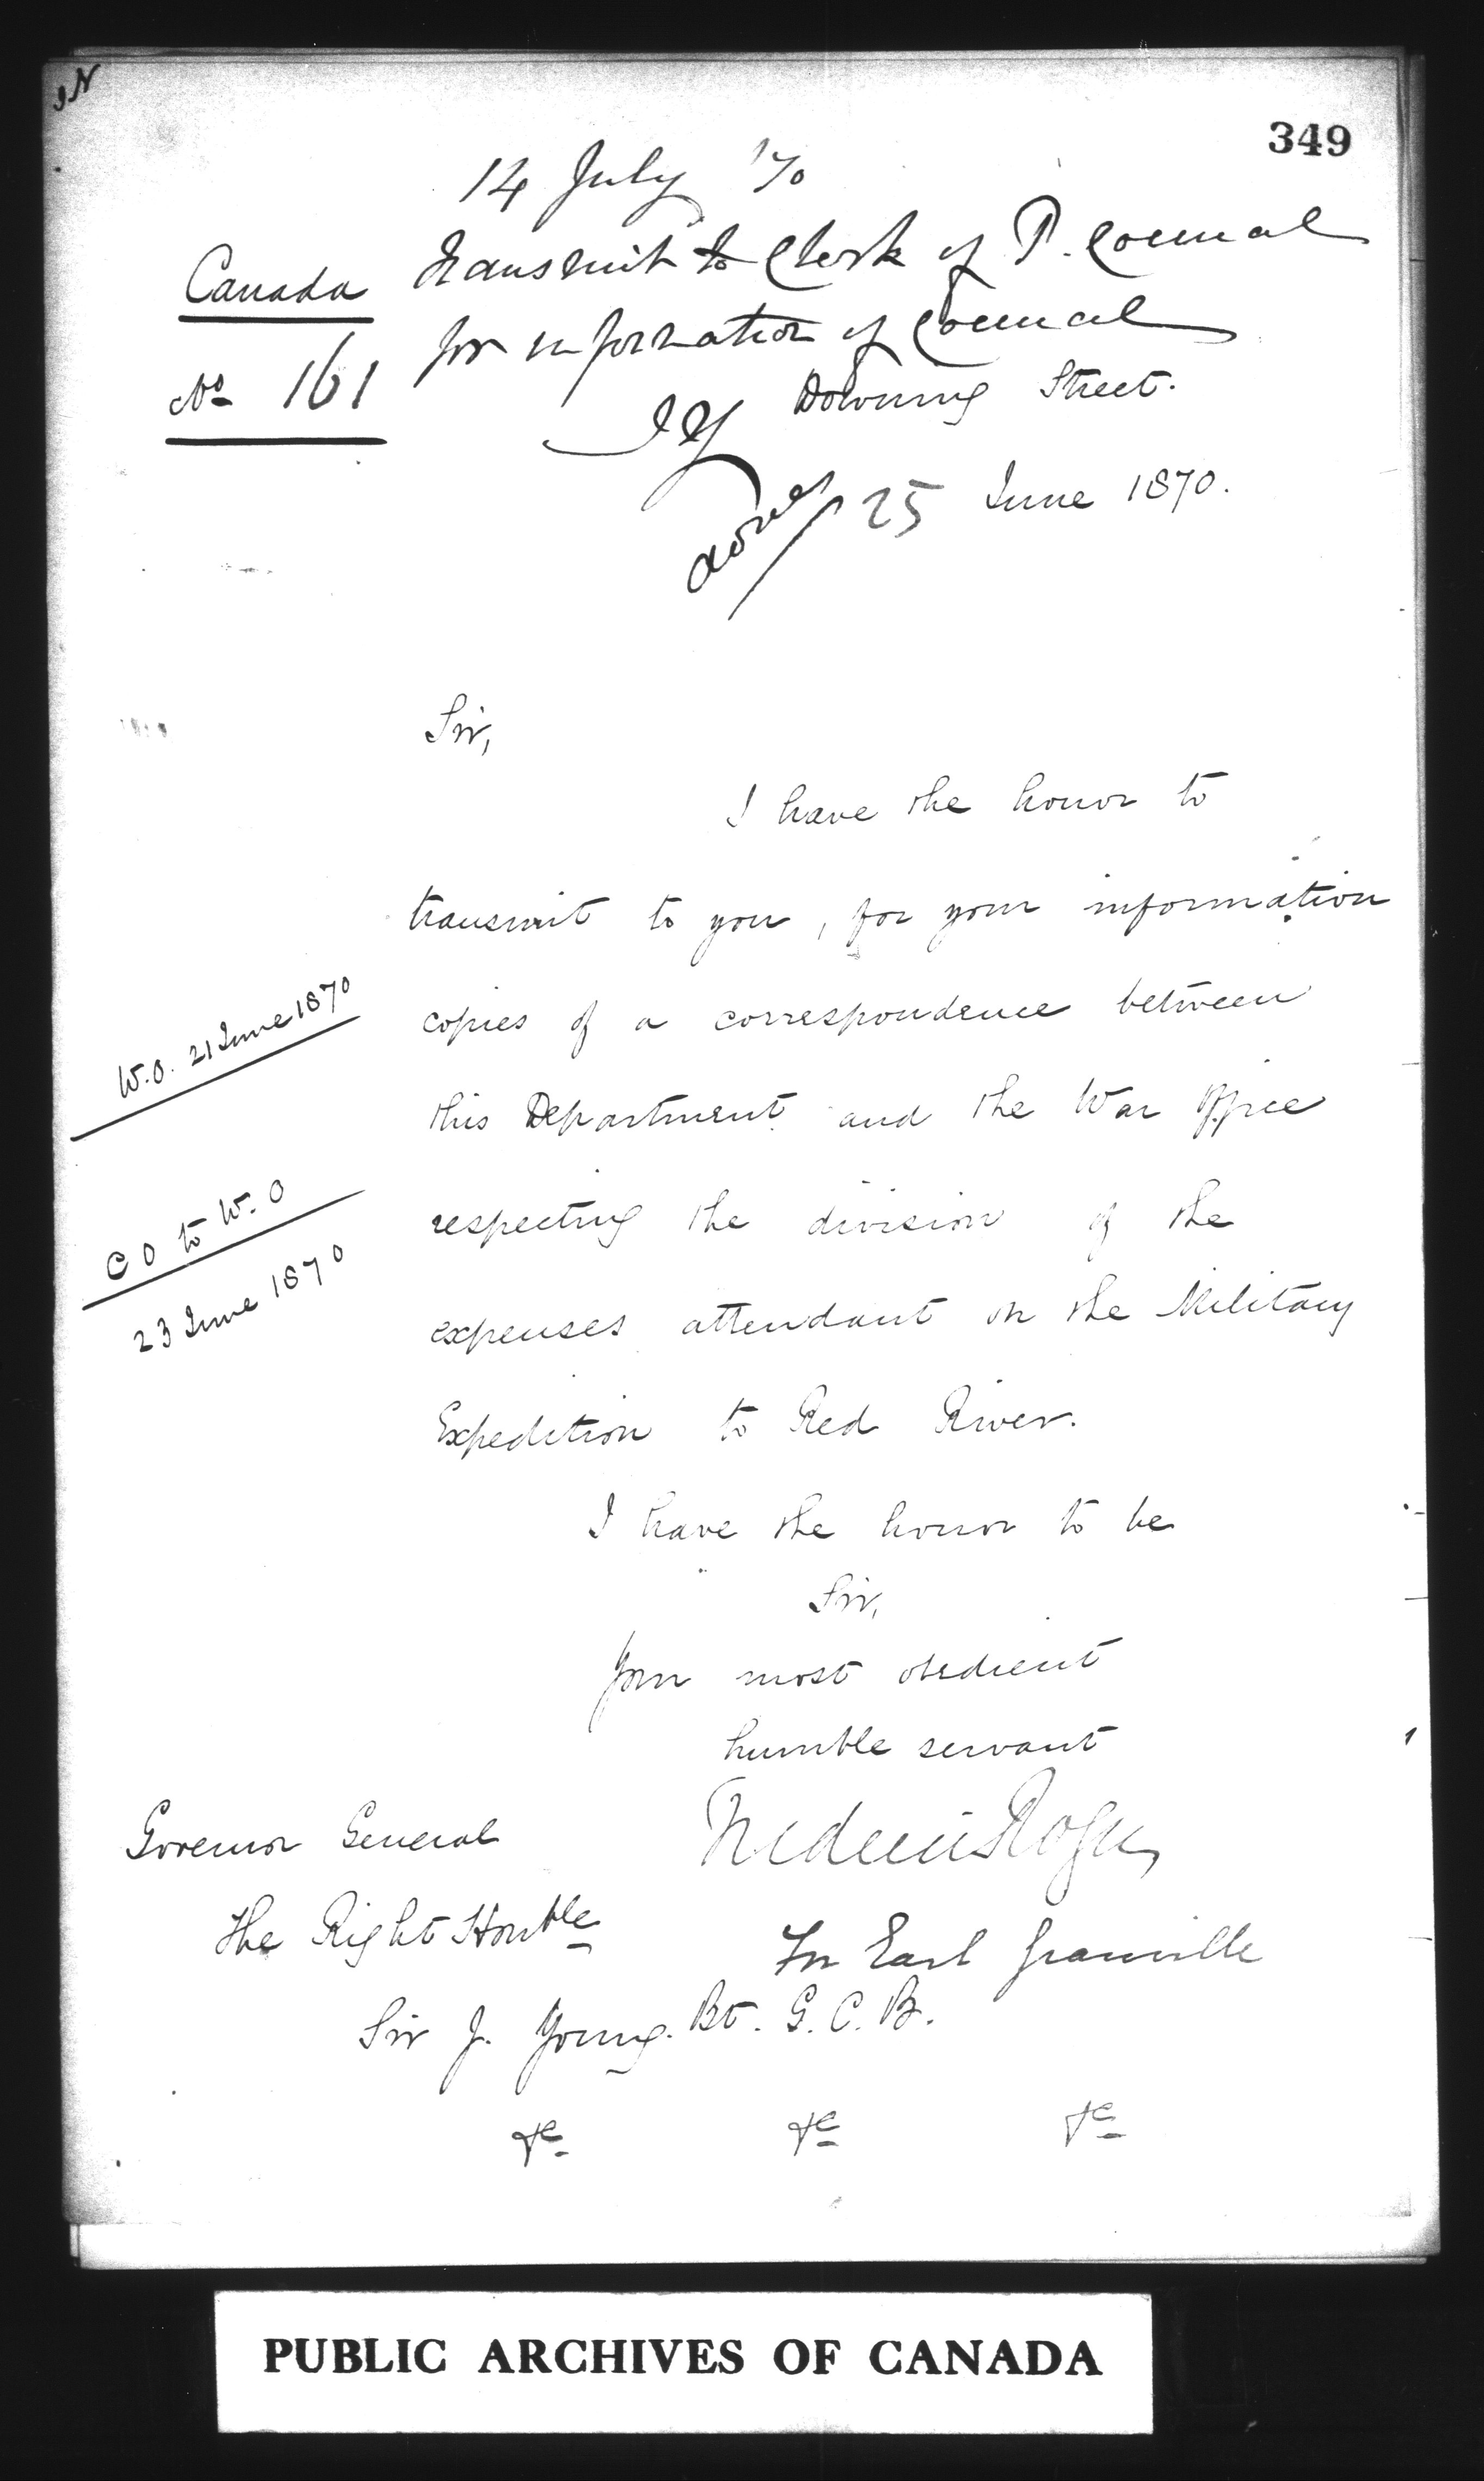 349
14 July '70
Transmit to Clerk of P. Council
for information of Council
JY
done
Canada
No 161
Downing Street.
25 June 1870.
Sir,
I have the honor to
transmit to you, for your information
copies of a correspondence between
this Department and the War Office
respecting the division of the
expenses attendant on the Military
Expedition to Red River.
W.O. 21 June 1870
C O to W. O
23 June 1870
I have the honor to be
Sir,
Your most obedient
humble servant
Frederic Rogers
For Earl Granville
Governor General
The Right Honble
Sir J. Young. Bt. G. C. B.
&c &c &c
PUBLIC ARCHIVES OF CANADA